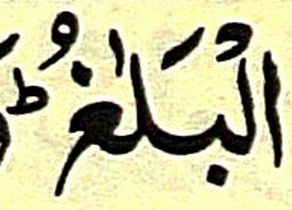 الْبَلٰغُ ؕ